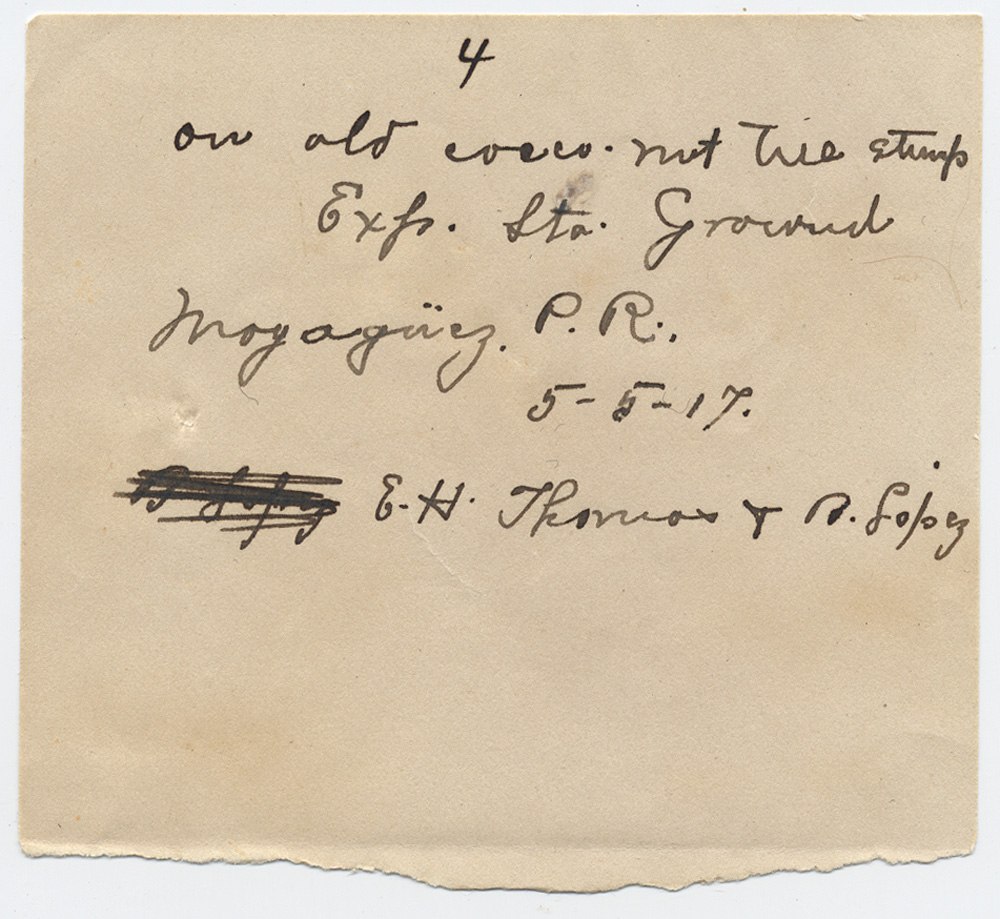 4
on old cocco-nut Tree stump
Exp. Sta. Ground
Mayagüez. P. R.,
5-5-17.
E. H. Thomas & B. Lopez